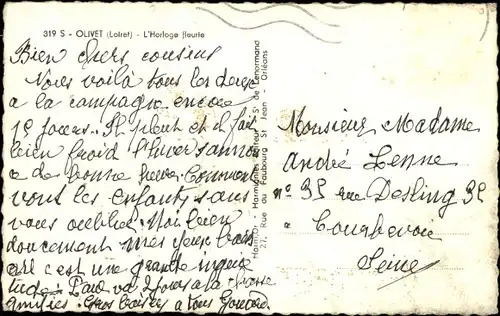 319 S - OLIVET (Loiret) - L'Horloge fleurie
Bien chers cousins
Nous voilà tous les deux
a la campagne encore
15 jours. Il pleut et il fait
bien froid l'hiver s'annon
ce de bonne heure. Comment
vont les enfants sans
vous oublier. Moi bien
doucement mes yeux
c'est une grande inquié
tude. Paul va 2 jours a la chasse
amitiés. Gros baisers a tous
St de Lenormand
27, Rue du Faubourg St Jean - Orléans
Monsieur Madame
André Lenne
n° 35 rue Desling 35
a Courbevoie
Seine